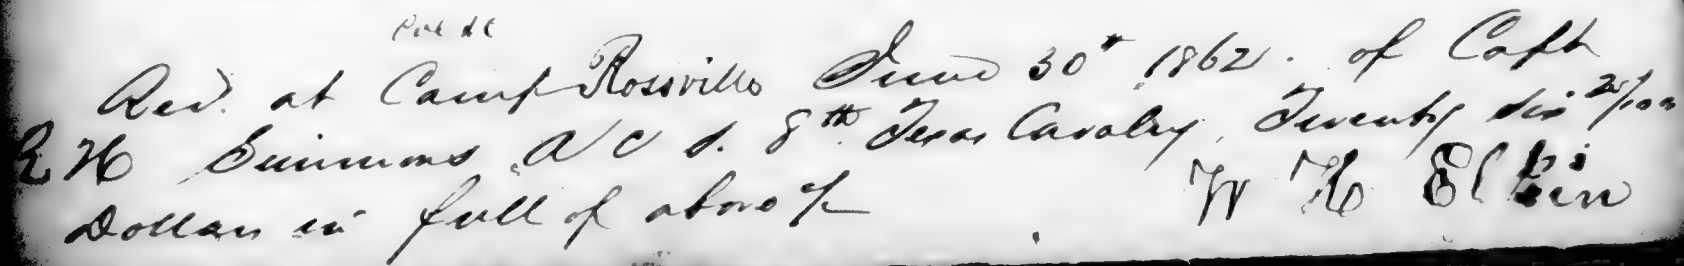 Recd. at Camp Rossville June 30th 1862. of Capt
E H Simmons A C S. 8th Texas Cavalry, Twenty six 25/100
Dollars in full of above a/c
W H Elkin